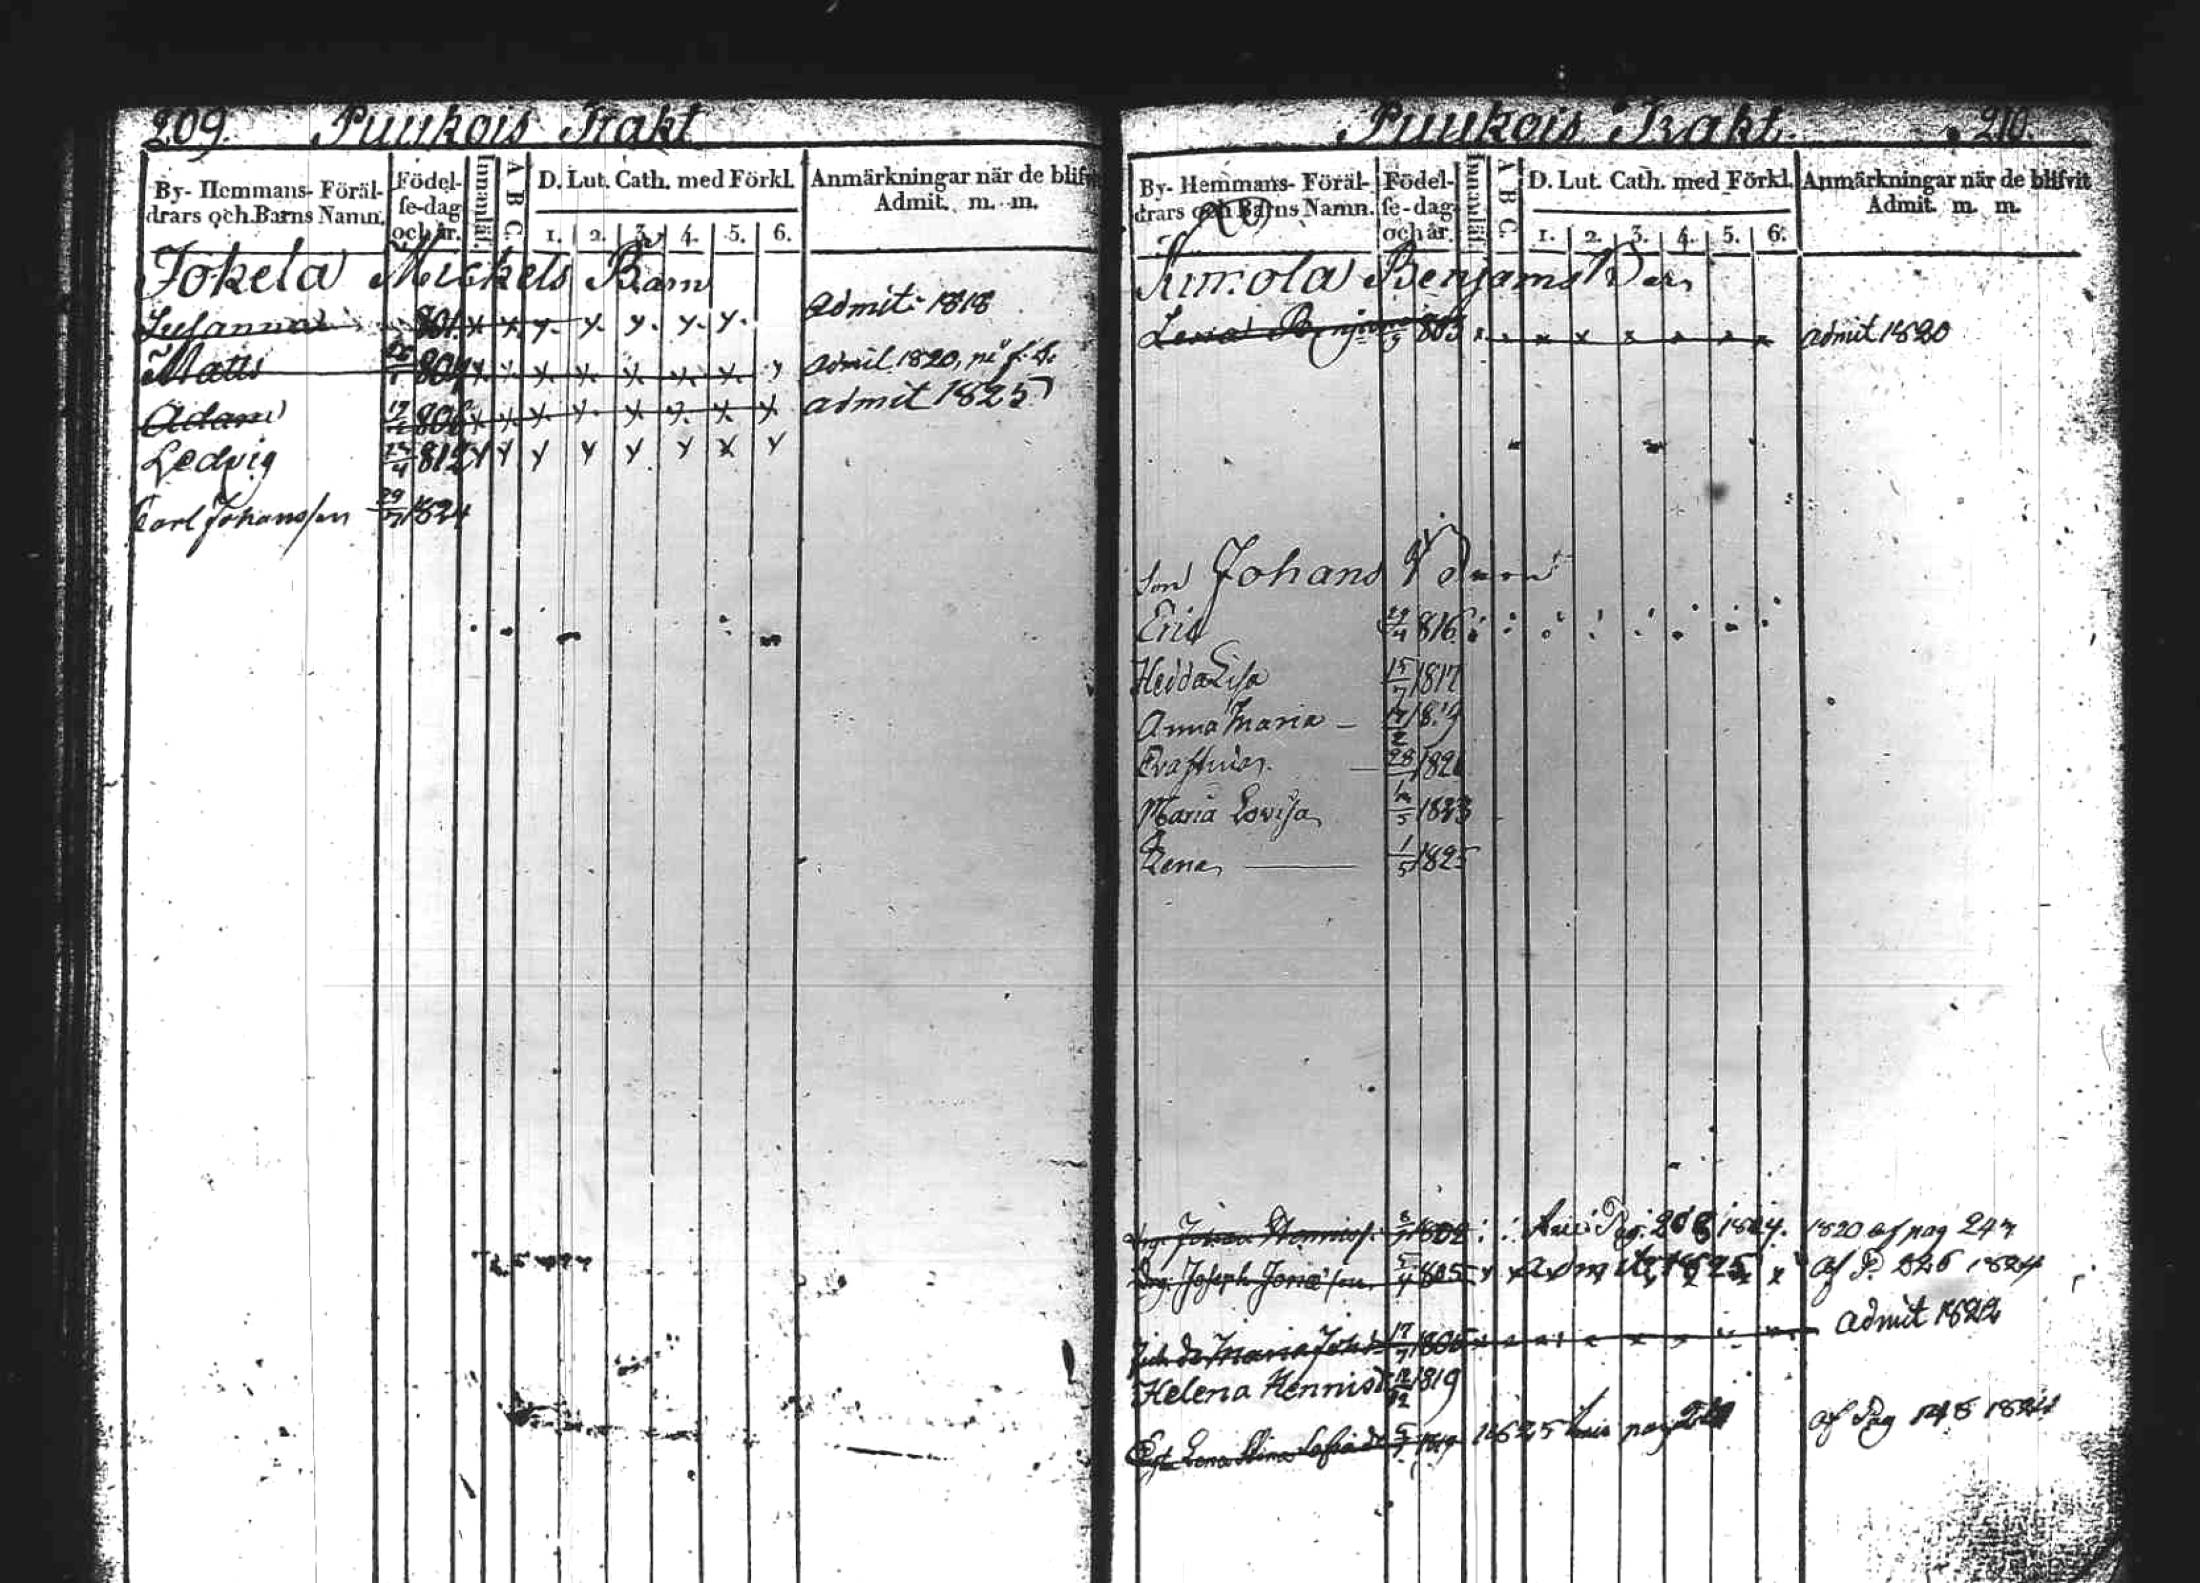 209. Puukois Trakt
By- Hemmans- Föräl-drars och Barns Namn.
Födel-se-dag och år.
Innanläs.
A B C.
D. Lut. Cath. med Förkl.
1. 2. 3. 4. 5. 6.
Anmärkningar när de blifvit Admit. m. m.
Jokela Mickels Barn
Susanna 801. x x y. y. y. y. y. admit 1818
Matts 804 x x x x x x x y admit 1820,
Adam 19 806 x x x x x x x x admit 1825
Ledvig 4 812 y y y y y y x y
Carl Johansson 29/7 1824
Puukois Trakt. 210.
By- Hemmans- Föräl-drars och Barns Namn.
Födel-se-dag och år.
Innanläs.
A B C.
D. Lut. Cath. med Förkl.
1. 2. 3. 4. 5. 6.
Anmärkningar när de blifvit Admit. m. m.
Benjams Barn
Lena 803 x x x x x x x x admit 1820
Son Johans Barn
Eric 4 816
Hedda Lisa 15/7 1817
Anna Maria 2 1819
Eva Stina 28
Maria Lovisa 5 1823
Lena 1/5 1825
Johan 8 1802 Pag. 1824. 1820 af pag 247
Drg. Joseph Jonasson 5/4 805 admit 1825 af P. 226 1824
Maria Joh 17/7 1805 admit 1822
Helena Hennisd 12/12 1819
Lena Stina 5 1825 pag af Pag 1824